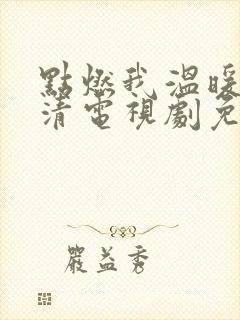 點燃我溫暖
清電視劇免
嚴益秀